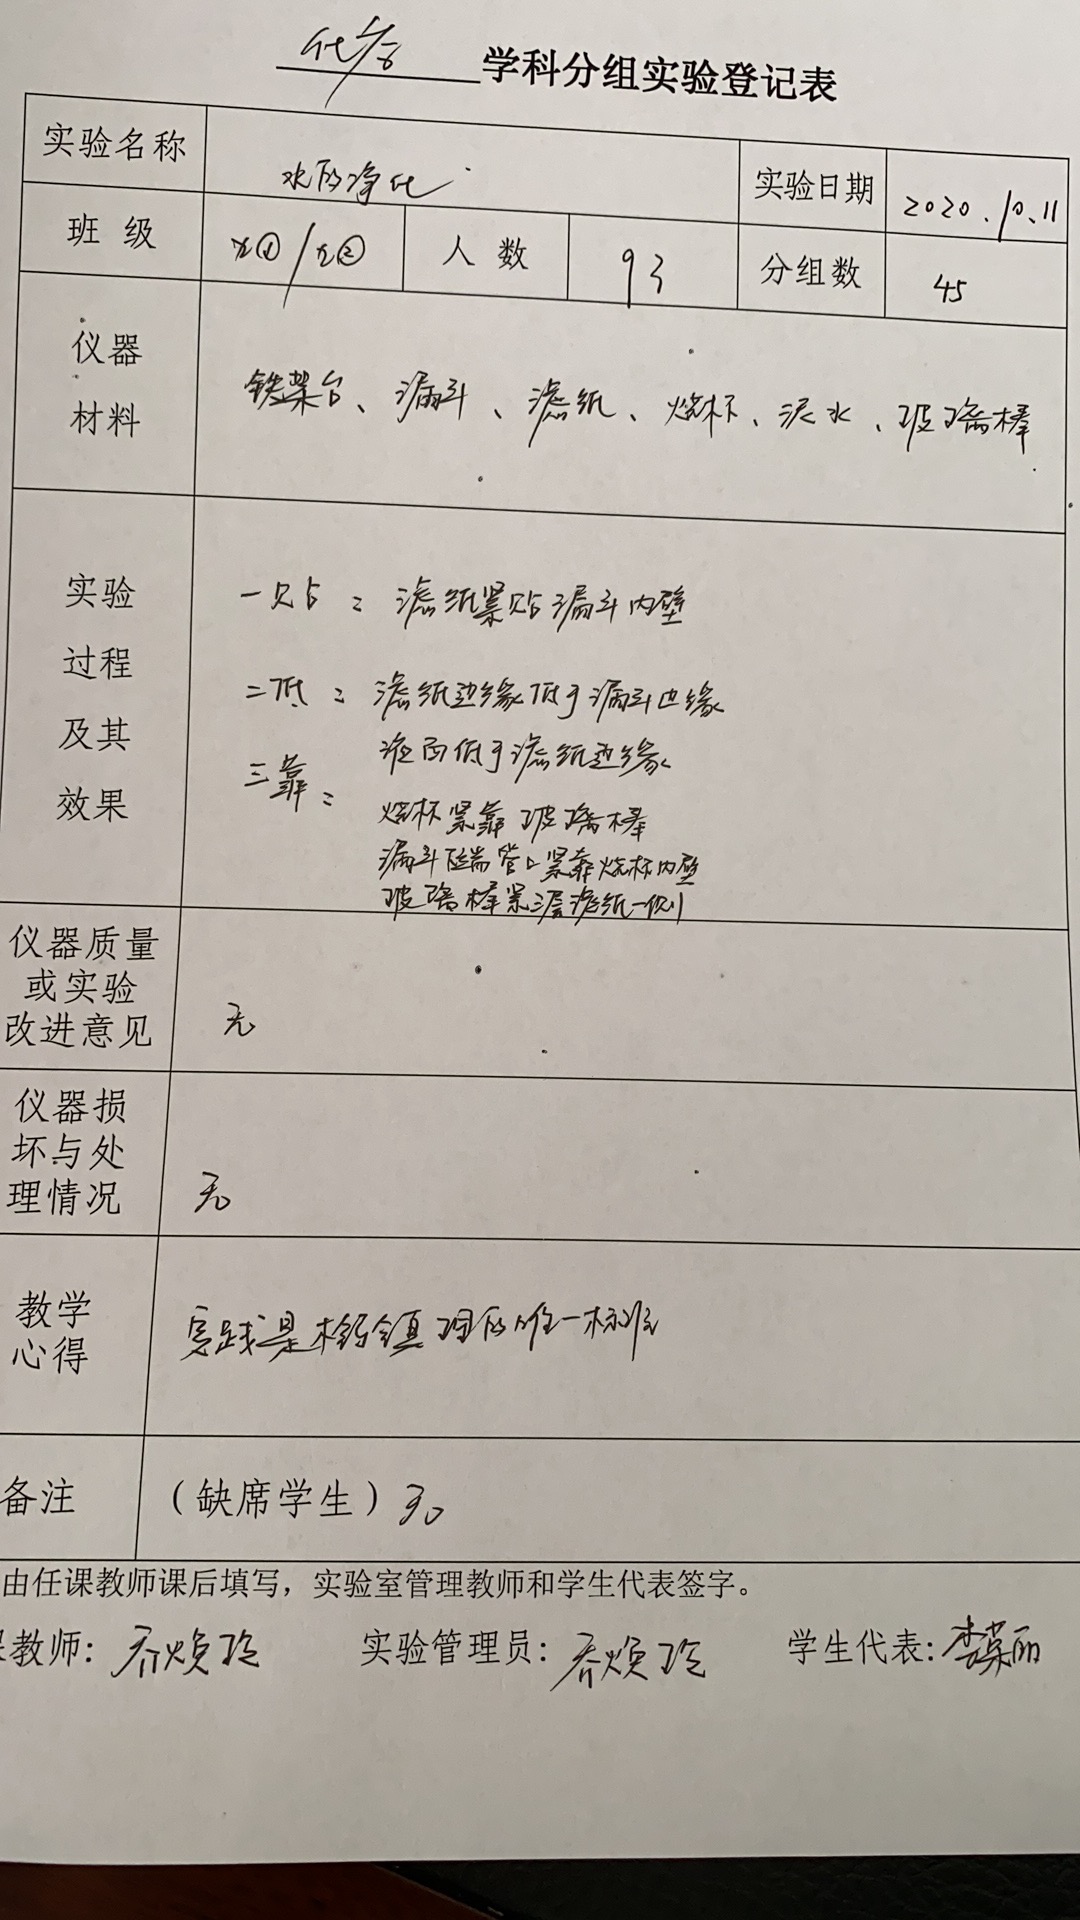 化学 学科分组实验登记表
实验名称 水的净化 实验日期 2020.10.11
班级 九①/九② 人数 93 分组数 45
仪器材料 铁架台、漏斗、滤纸、烧杯、泥水、玻璃棒
实验过程及其效果
一贴：滤纸紧贴漏斗内壁
二低：滤纸边缘低于漏斗边缘
液面低于滤纸边缘
三靠：烧杯紧靠玻璃棒
漏斗下端管口紧靠烧杯内壁
玻璃棒紧三层滤纸一侧
仪器质量或实验改进意见 无
仪器损坏与处理情况 无
教学心得 实践是检验真理的唯一标准
备注 （缺席学生）无
由任课教师课后填写，实验室管理教师和学生代表签字。
课教师：乔焕玲 实验管理员：乔焕玲 学生代表：李荣丽